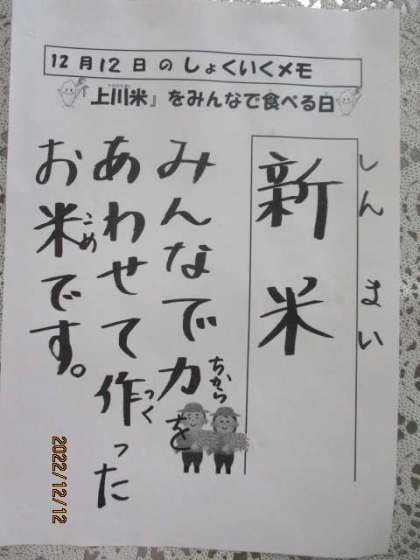 12月12日 の しょくいくメモ
『上川米』をみんなで食べる日
しん まい
新米
みんなで力を
ちから
あわせて作った
つく
お米です。
こめ
2022/12/12